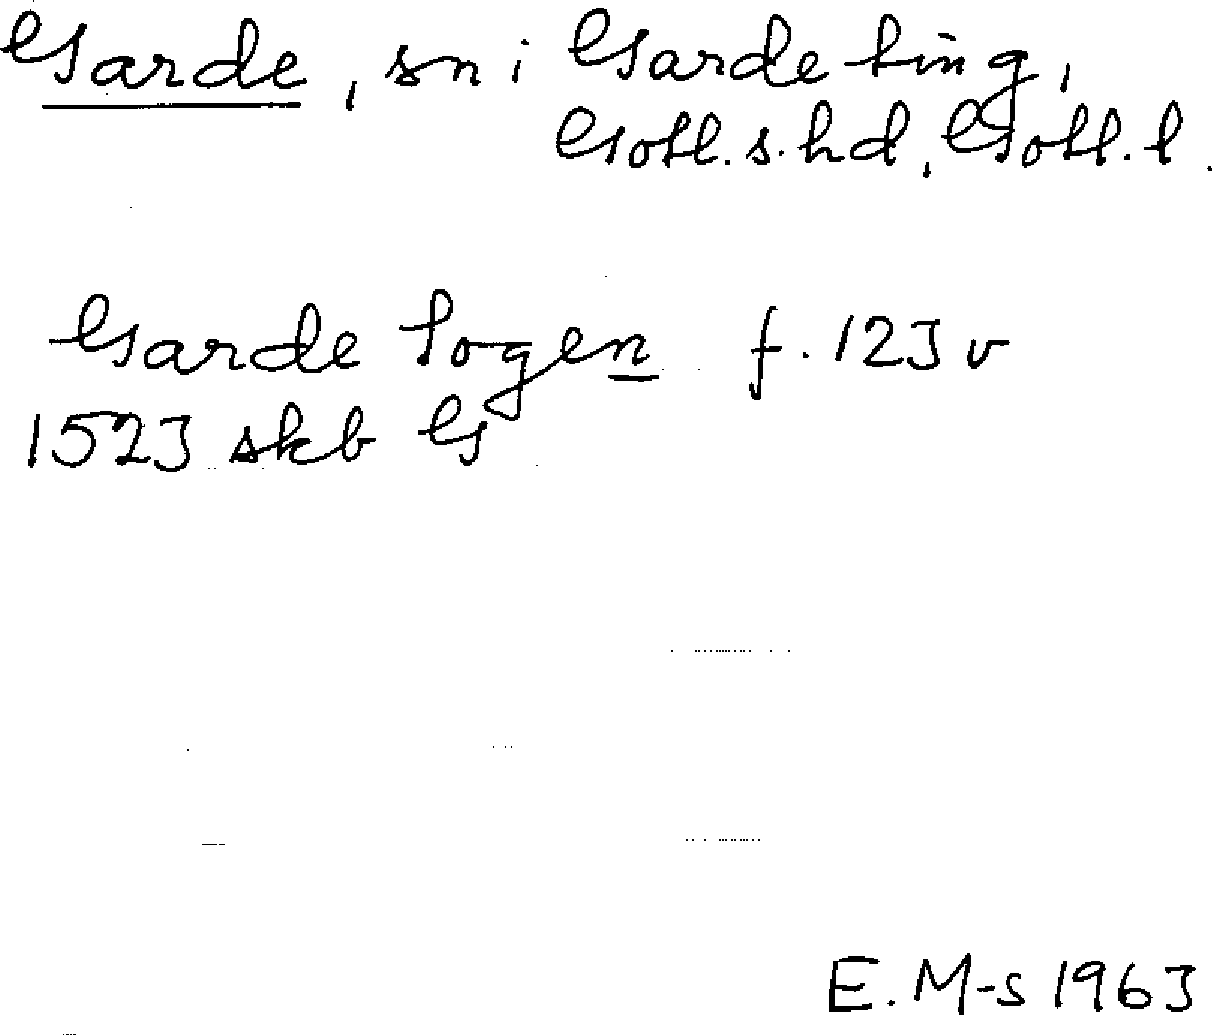 Garde, sn i Garde ting,
Gotl. s. hd, Gotl. l.
Garde Sogen f. 123 v
1523 skb G
E. M-s 1963